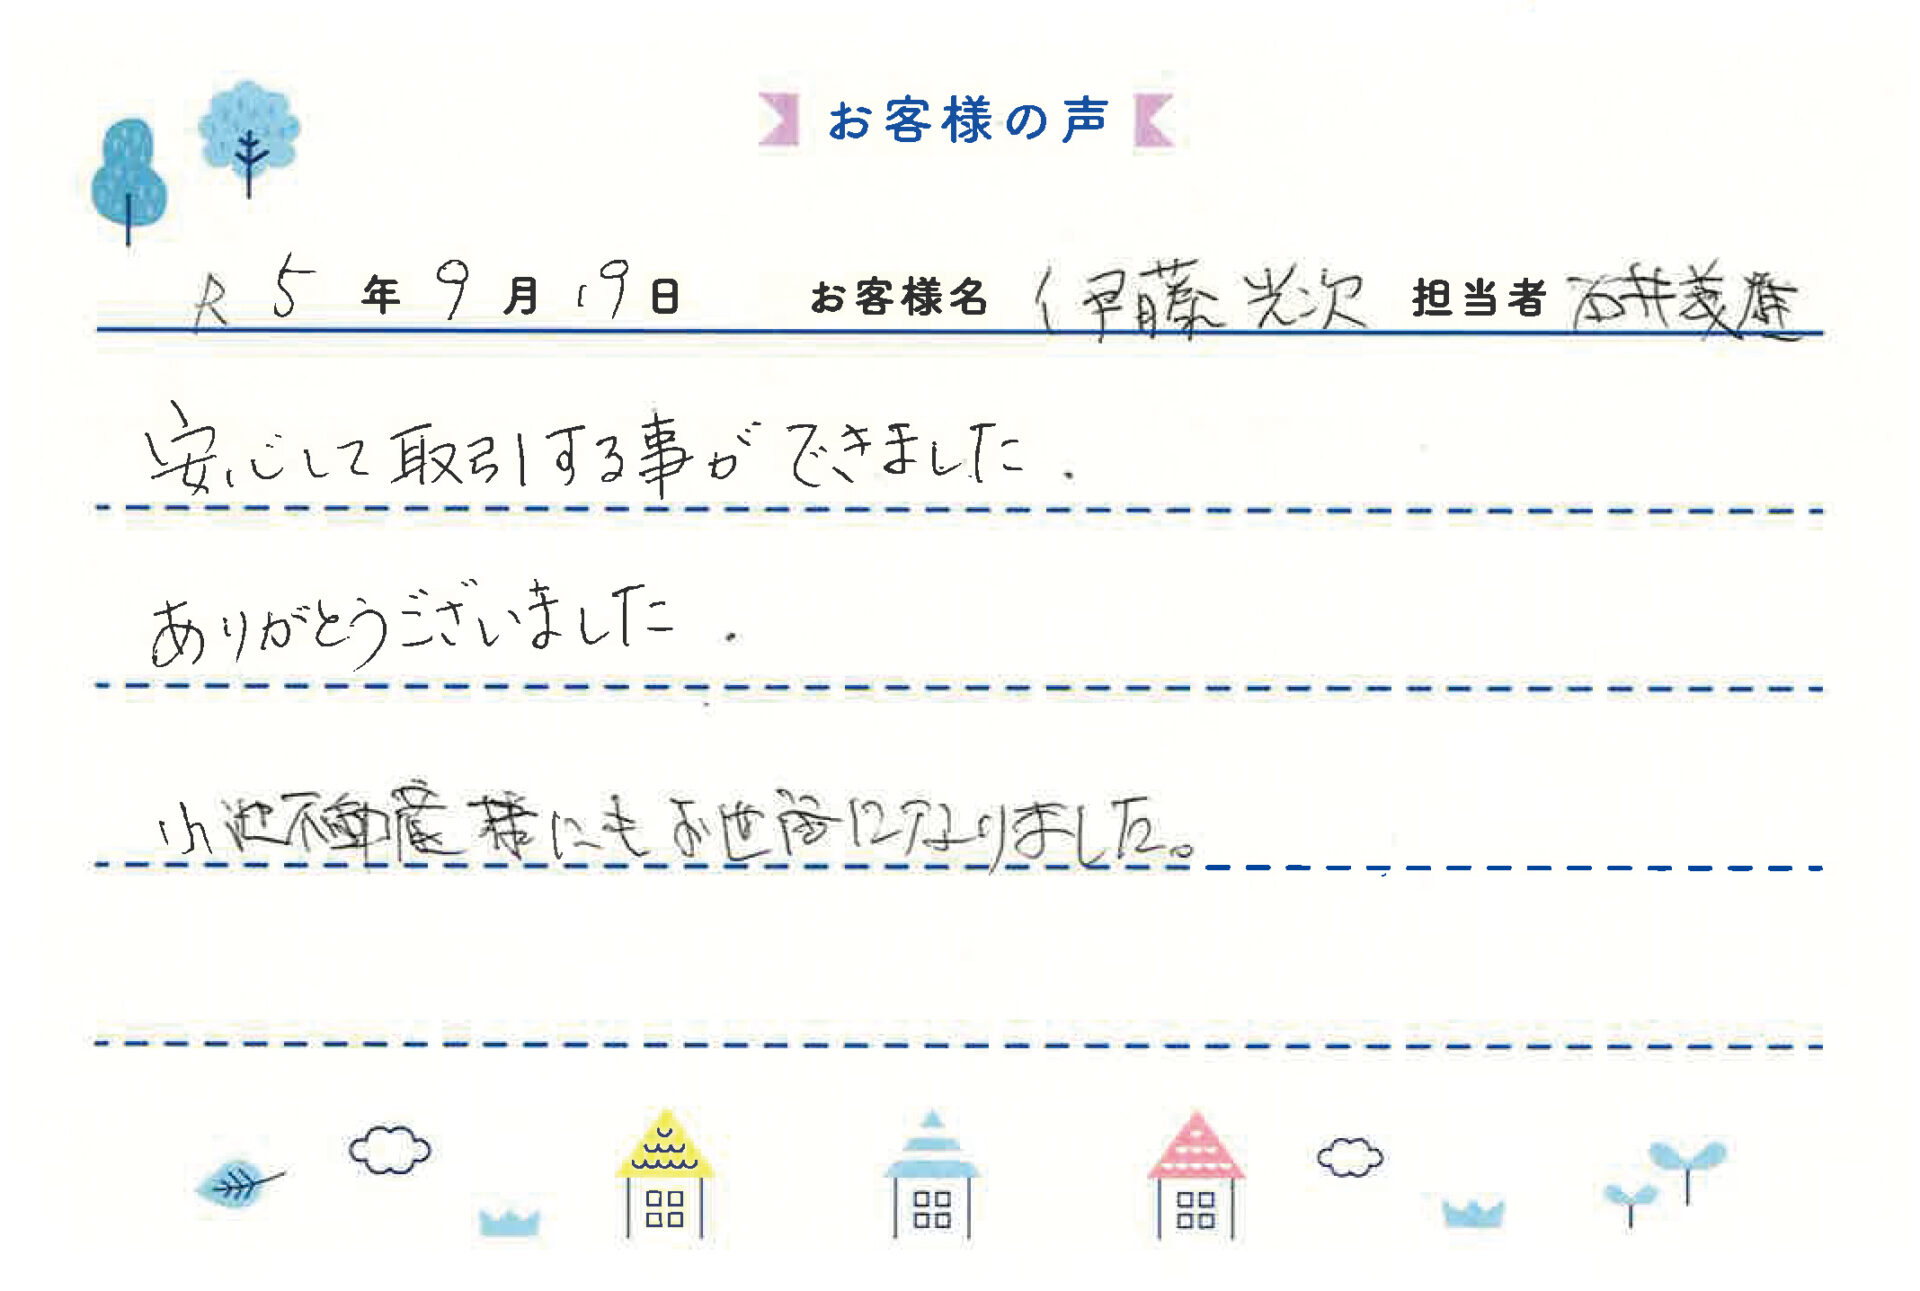 お客様の声
R5年9月19日 お客様名 伊藤光次 担当者 石井義雄
安心して取引する事ができました.
ありがとうございました.
小池不動産様にもお世話になりました。